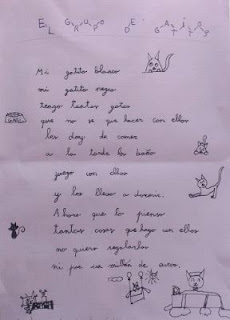 EL GRUPO DE GATITOS
Mi gatito blanco
mi gatito negro
tengo tantos gatos
que no se que hacer con ellos
les doy de comer
a la tarde los baño
juego con ellos
y los llevo a dormir.
Ahora que lo pienso
tantas cosas que hago con ellos
no quiero regalarlos
ni por un millón de euros.